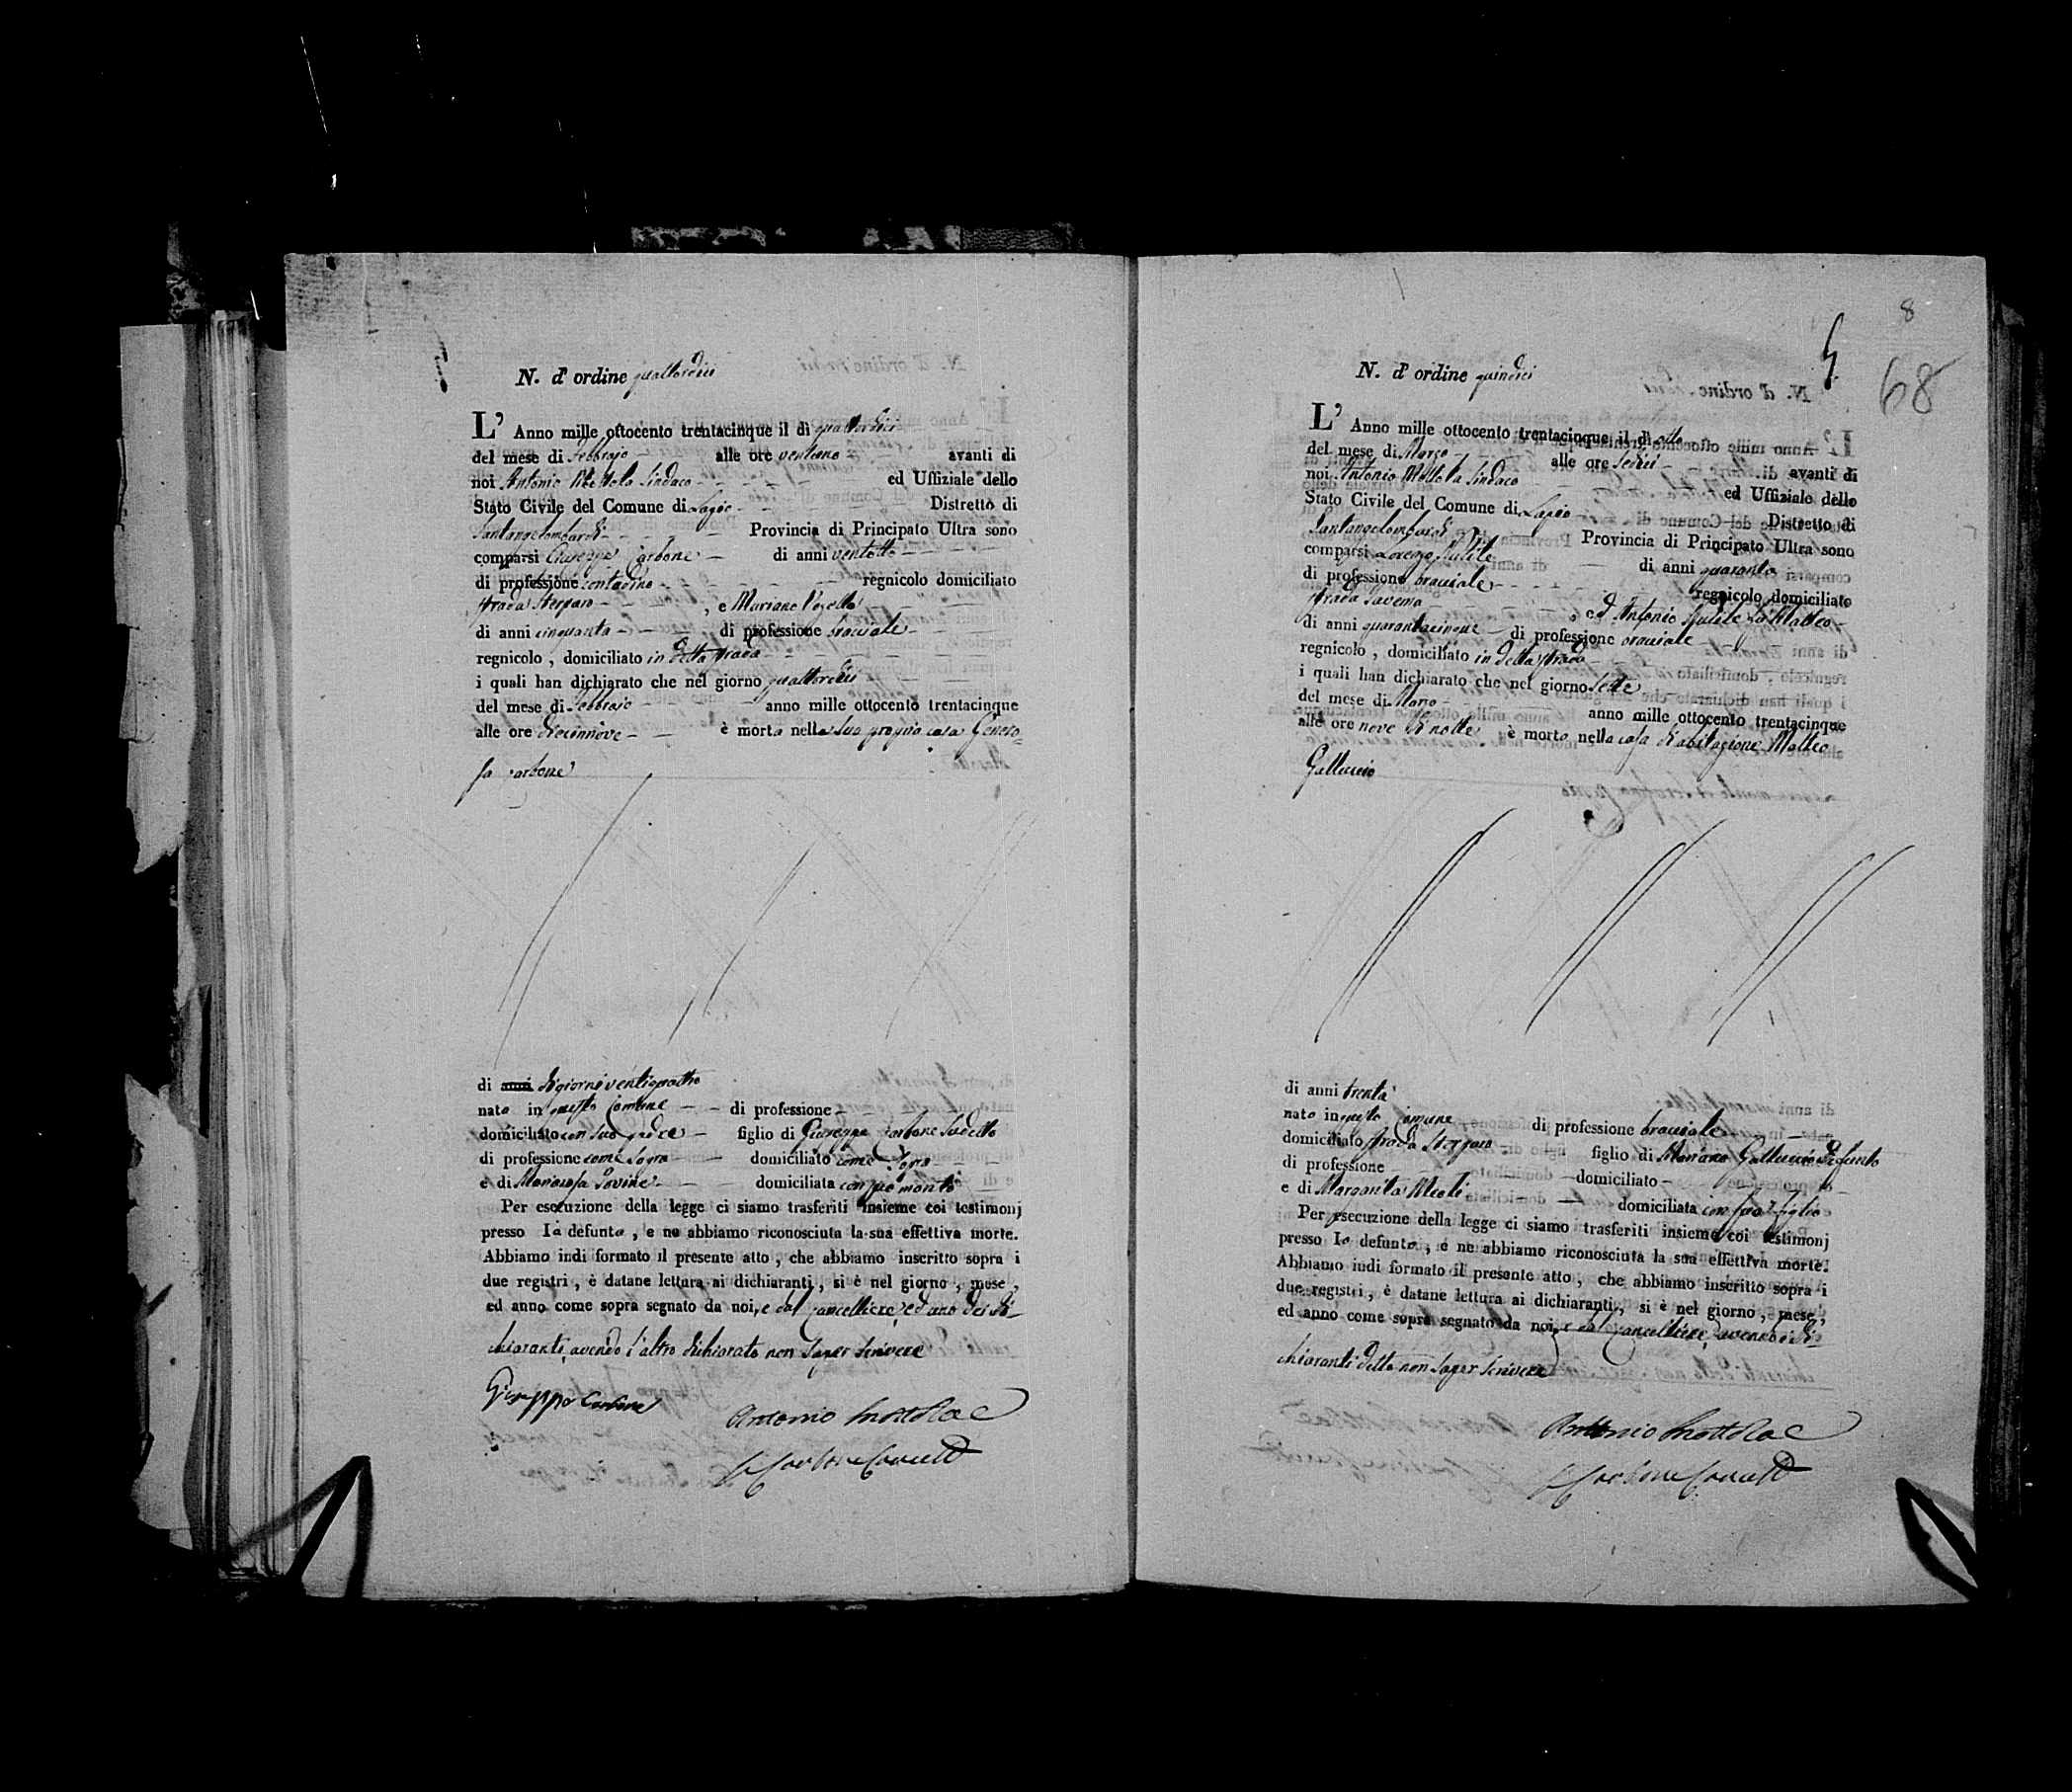 N. d'ordine quattordici
L' Anno mille ottocento trentacinque il di quattordici
del mese di Febbrajo alle ore ventuno avanti di
noi Antonio Mottola Sindaco ed Uffiziale dello
Stato Civile del Comune di Lapio Distretto di
Santangelombardi Provincia di Principato Ultra sono
comparsi Giuseppe Carbone di anni ventotto
di professione contadino regnicolo domiciliato
strada , e Mariano
di anni cinquanta di professione bracciale
regnicolo , domiciliato in detta strada
i quali han dichiarato che nel giorno quattordici
del mese di Febbrajo anno mille ottocento trentacinque
alle ore diecinnove è morta nella sua propria casa Genero=
sa Carbone
di anni di giorni ventiquattro
nata in questo Comune di professione
domiciliato con suo padre figlio di Giuseppe Carbone sudetto
di professione come sopra domiciliato come sopra
e di Mariarosa Iovine domiciliata con suo marito
Per esecuzione della legge ci siamo trasferiti insieme coi testimonj
presso la defunta , e ne abbiamo riconosciuta la sua effettiva morte.
Abbiamo indi formato il presente atto , che abbiamo inscritto sopra i
due registri , è datane lettura ai dichiaranti , si è nel giorno , mese ,
ed anno come sopra segnato da noi, e dal Cancelliere, ed uno dei di-
chiaranti, avendo l'altro dichiarato non saper scrivere
Giuseppe Carbone
Antonio Mottola
Carbone Cancell
8
68
N. d'ordine quindici
L' Anno mille ottocento trentacinque il di otto
del mese di Marzo alle ore sedici avanti di
noi Antonio Mottola Sindaco ed Uffiziale dello
Stato Civile del Comune di Lapio Distretto di
Santangelombardi Provincia di Principato Ultra sono
comparsi Lorenzo di anni quaranta
di professione bracciale regnicolo domiciliato
strada , ed Antonio di Matteo
di anni quarantacinque di professione bracciale
regnicolo , domiciliato in detta strada
i quali han dichiarato che nel giorno sette
del mese di Marzo anno mille ottocento trentacinque
alle ore nove di notte è morto nella casa d'abitazione Matteo
Galluccio
di anni trenta
nato in questo Comune di professione bracciale
domiciliato strada figlio di Mariano Galluccio defunto
di professione domiciliato
e di Margarita Meoli domiciliata con suo figlio
Per esecuzione della legge ci siamo trasferiti insieme coi testimonj
presso lo defunto , e ne abbiamo riconosciuta la sua effettiva morte.
Abbiamo indi formato il presente atto , che abbiamo inscritto sopra i
due registri , è datane lettura ai dichiaranti , si è nel giorno , mese ,
ed anno come sopra segnato da noi, e dal Cancelliere, avendo i di-
chiaranti detto non saper scrivere
Antonio Mottola
Carbone Cancell